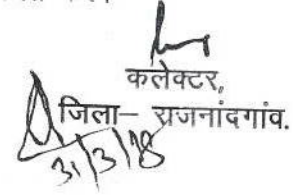 कलेक्टर,
जिला– राजनांदगांव.
31/3/18